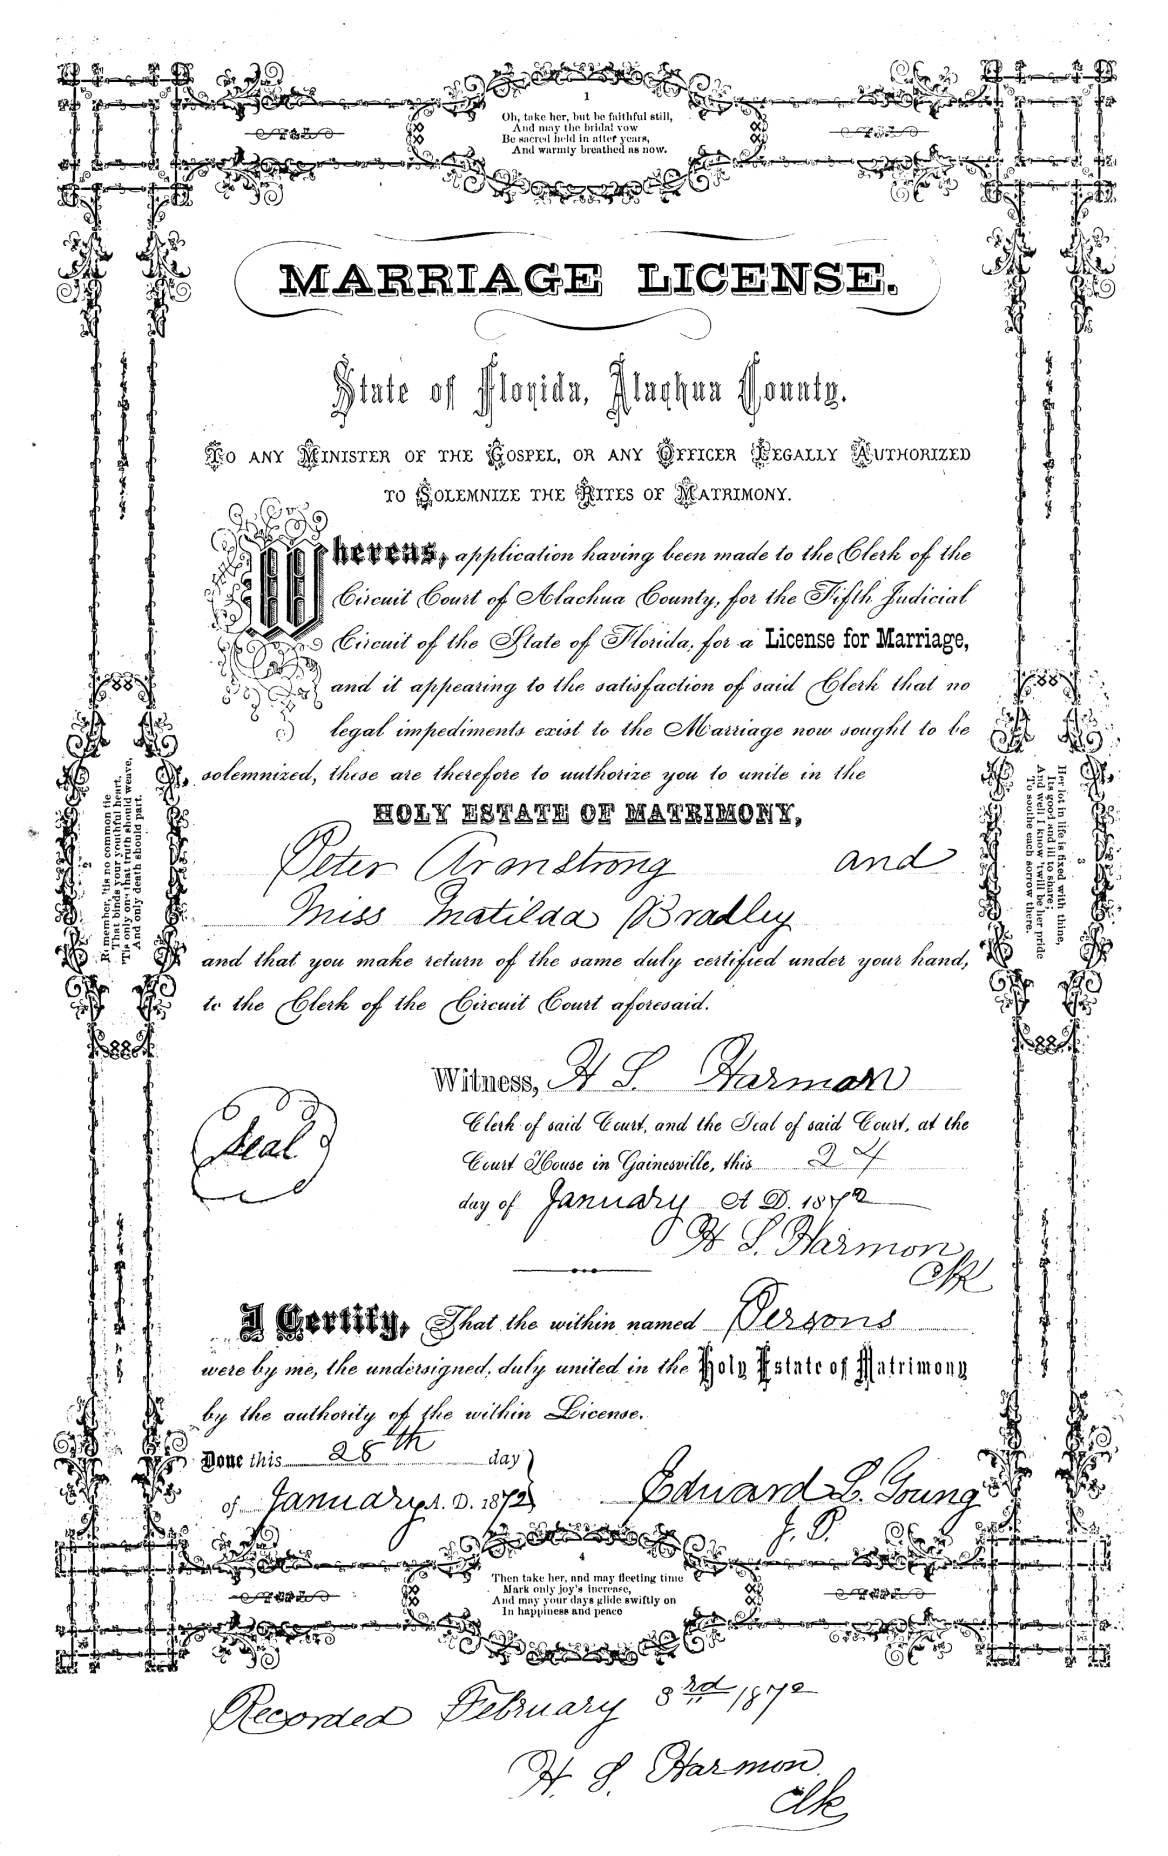 1
Oh, take her, but be faithful still,
And may the bridal vow
Be sacred held in after years,
And warmly breathed as now.
MARRIAGE LICENSE.
State of Florida, Alachua County.
TO ANY MINISTER OF THE GOSPEL, OR ANY OFFICER LEGALLY AUTHORIZED
TO SOLEMNIZE THE RITES OF MATRIMONY.
Whereas, application having been made to the Clerk of the
Circuit Court of Alachua County, for the Fifth Judicial
Circuit of the State of Florida, for a License for Marriage,
and it appearing to the satisfaction of said Clerk that no
legal impediments exist to the Marriage now sought to be
solemnized, these are therefore to authorize you to unite in the
HOLY ESTATE OF MATRIMONY,
Peter Armstrong and
Miss Matilda Bradley
and that you make return of the same duly certified under your hand,
to the Clerk of the Circuit Court aforesaid.
2
Remember, 'tis no common tie
That binds your youthful heart,
'Tis only one that truth should weave,
And only death should part.
3
Her lot in life is fixed with thine,
Its good and ill to share;
And well I know 'twill be her pride
To soothe each sorrow there.
Witness, H S. Harmon
Clerk of said Court, and the Seal of said Court, at the
Court House in Gainesville, this 24
day of January A D. 1872
Seal
H S. Harmon
Clk
I Certify, That the within named Persons
were by me, the undersigned, duly united in the Holy Estate of Matrimony
by the authority of the within License.
Done this 28th day
of January A. D. 1872
Edward L. Young
J. P.
4
Then take her, and may fleeting time
Mark only joy's increase,
And may your days glide swiftly on
In happiness and peace
Recorded February 3rd 1872
H. S. Harmon
Clk